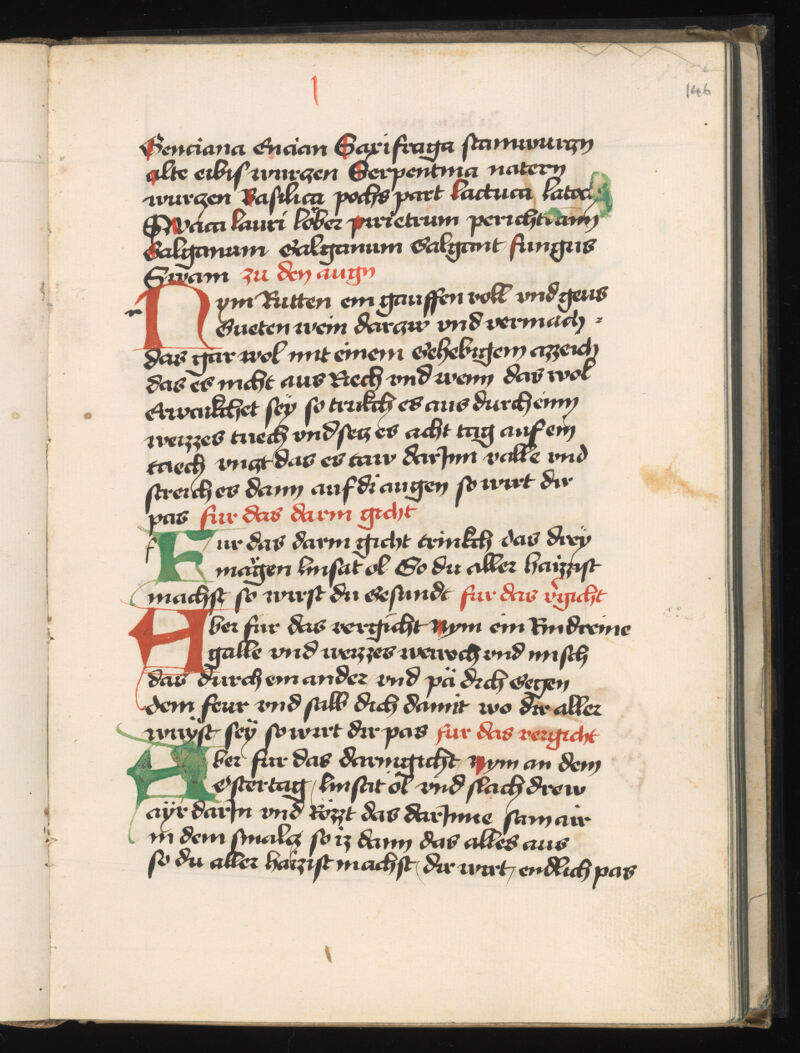 l
146
Genciana Encian Saxifraga stainwurczn
alte eibis wurczen Serpentina natern
wurczen Basilica pochs part lactuca latoch
Baca lauri lober piretrum perichtramm
Galganum Galganum Galgant fungus
Swam zu den augn
Nym Rutten ein gauffen voll vnd geus
Sueten wein darczw vnd vermach
das gar wol mit einem Gehebigem czeich
das es nicht aus Riech vnd wenn das wol
Erwaikchet sey so trukch es aus durch einn
weizzes tuech vnd secz es acht tag auf ein
taech vnczt das es taw darInn valle vnd
streich es dann auf di augen so wirt dir
pas fur das darm gicht
Fur das darm gicht trinkch das drey
margen linsat ol So du aller haizzist
machst so wirst du Gesundt fur das vergicht
Aber fur das vergicht Nym ein Rindreine
galle vnd weizzes weiroch vnd misch
das durch ein ander vnd pä dich Gegen
dem feur vnd salb dich damit wo dir aller
wirst sey so wirt dir pas fur das vergicht
Aber fur das darmgicht Nym an dem
Estertag linsat öl vnd slach drew
ayr darIn vnd Rözzt das darInne sam air
in dem smalcz so iz dann das alles aus
so du aller haizist machst dir wirt endlich pas